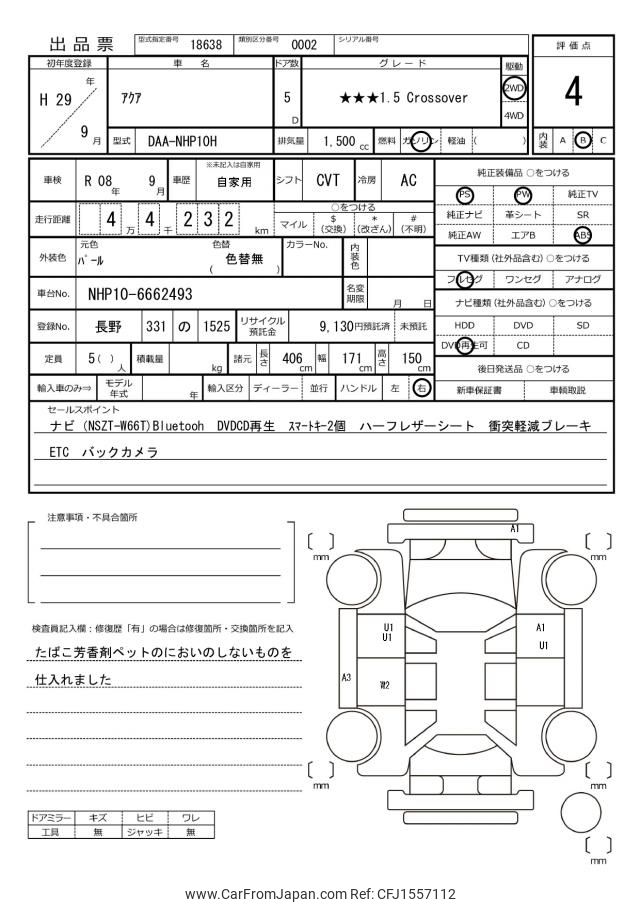 出品票 型式指定番号 18638 類別区分番号 0002 シリアル番号
評価点
初年度登録 車名 ドア数 グレード 駆動
H 29 年 9 月
アクア
5 D
★★★1.5 Crossover
2WD
4WD
4
型式 DAA-NHP10H 排気量 1,500 cc 燃料 ガソリン 軽油 ( )
内装 A B C
車検 R 08 年 9 月 車歴 ※未記入は自家用 自家用 シフト CVT 冷房 AC
純正装備品 ○をつける
PS PW 純正TV
純正ナビ 革シート SR
純正AW エアB ABS
走行距離 4 万 4 千 2 3 2 km
○をつける
マイル $ (交換) * (改ざん) # (不明)
外装色 元色 パール 色替 ( 色替無 ) カラーNo. 内装色
TV種類 (社外品含む) ○をつける
フルセグ ワンセグ アナログ
車台No. NHP10-6662493 名変期限 月 日
ナビ種類 (社外品含む) ○をつける
HDD DVD SD
DVD再生可 CD
登録No. 長野 331 の 1525 リサイクル預託金 9,130円預託済 未預託
定員 5 ( ) 人 積載量 kg 諸元 長さ 406 cm 幅 171 cm 高さ 150 cm
後日発送品 ○をつける
新車保証書 車輌取説
輸入車のみ⇒ モデル年式 年 輸入区分 ディーラー 並行 ハンドル 左 右
セールスポイント
ナビ (NSZT-W66T)Bluetooh DVDCD再生 スマートキー2個 ハーフレザーシート 衝突軽減ブレーキ
ETC バックカメラ
注意事項・不具合箇所
検査員記入欄：修復歴「有」の場合は修復箇所・交換箇所を記入
たばこ芳香剤ペットのにおいのしないものを
仕入れました
A1
mm
mm
U1
U1
A1
U1
A3
W2
mm
mm
mm
ドアミラー キズ ヒビ ワレ
工具 無 ジャッキ 無
www.CarFromJapan.com Ref: CFJ1557112